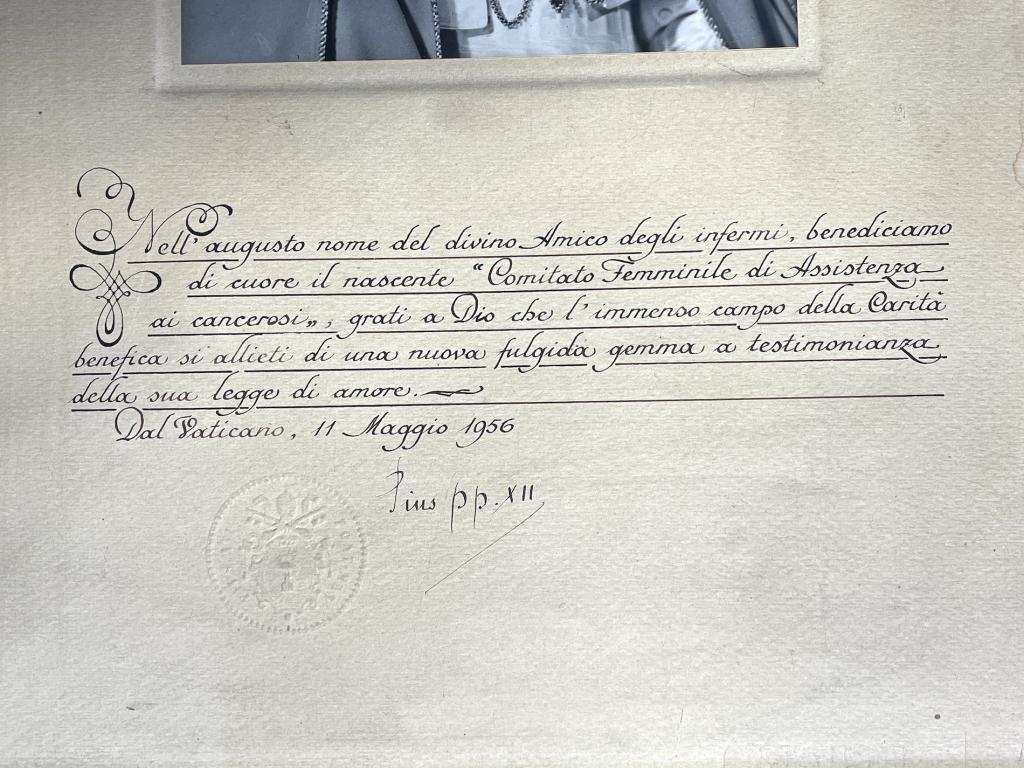 Nell' augusto nome del divino Amico degli infermi, benediciamo
di cuore il nascente “Comitato Femminile di Assistenza
ai cancerosi„, grati a Dio che l'immenso campo della Carità
benefica si allieti di una nuova fulgida gemma a testimonianza
della sua legge di amore.
Dal Vaticano, 11 Maggio 1956
Pius pp. XII